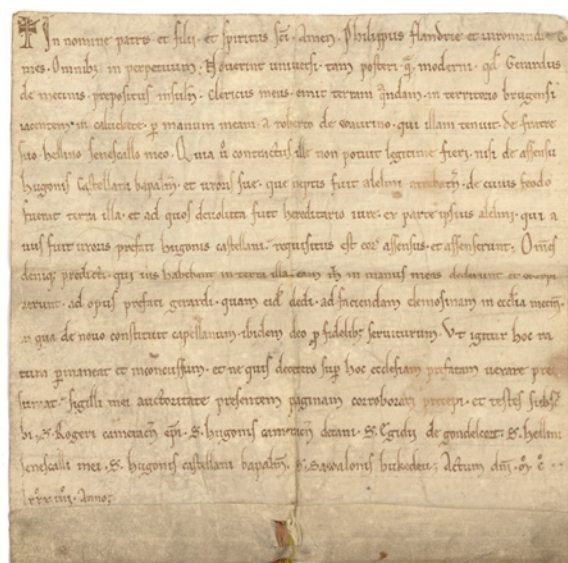 In nomine patris et filii et spiritus sci. Amen. Philippus flandrie et viromandie co
mes. Omnibz in perpetuum. Noverint universi tam posteri q̃ moderni. qd Gerardus
de mecinis prepositus insulen̄. clericus meus. emit terram q̃ndam in territorio brugensi
iacentem in calvekete. p manum meam. a roberto de wavrino. qui illam tenuit de fratre
suo hellino senescallo meo. Quia ů contractus ille non potuit legitime fieri. nisi de assensu
hugonis Castellani bapalm̄. et uxoris sue. que neptis fuit alelmi de cuius feodo
fuerat terra illa. et ad quos devoluta fuit hereditario iure. ex parte ipsius alelmi. qui a
vus fuit uxoris prefati hugonis castellani. requisitus est eoꝝ assensus. et assenserunt. Om̄es
deniqꝫ predicti. qui ius habebant in terra illa. eam in manus meas dederunt et
verunt. ad opus prefati gerardi. quam eidē dedi. ad faciendam elemosinam in ecclia mecin̄.
in qua de novo constituit capellanum ibidem deo p fidelibꝫ serviturum. Ut igitur hoc ra
tum pmaneat et inconcussum. et ne quis decetero sup hoc ecclesiam prefatam vexare pre
sumat. sigilli mei auctoritate presentem paginam corroborari precepi. et testes subscͥ
bi. S. Rogeri cameracen̄ epi. S. hugonis cameracen̄ decani. S. Egidii de gondelcort. S. hellini
senescalli mei. S. hugonis castellani bapalm̄. S. Sawalonis hukedeu. Actum dn̄i. m̊. c̊.
lxxx. iiii. Anno.